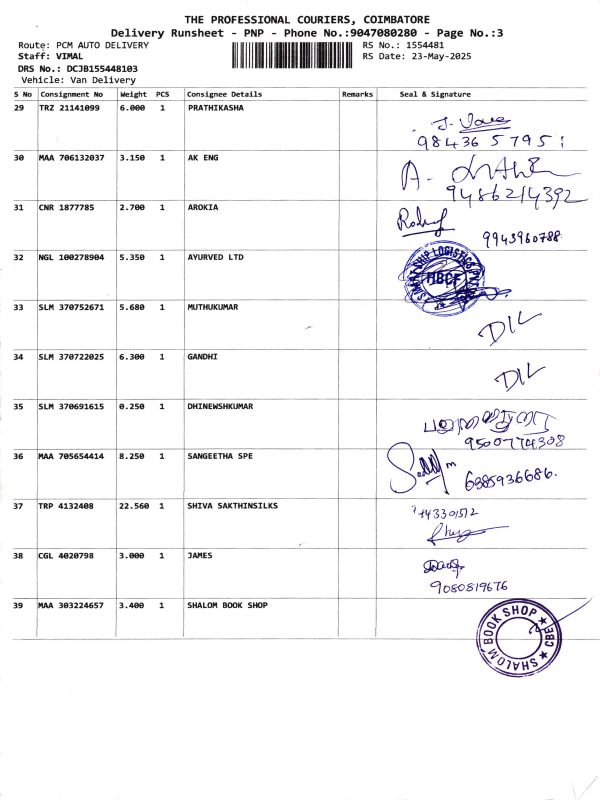 THE PROFESSIONAL COURIERS, COIMBATORE
Delivery Runsheet - PNP - Phone No.:9047080280 - Page No.:3
Route: PCM AUTO DELIVERY RS No.: 1554481
Staff: VIMAL RS Date: 23-May-2025
DRS No.: DCJB155448103
Vehicle: Van Delivery
S No Consignment No Weight PCS Consignee Details Remarks Seal & Signature
29 TRZ 21141099 6.000 1 PRATHIKASHA
98436 57951
30 MAA 706132037 3.150 1 AK ENG
A.
9486214392
31 CNR 1877785 2.700 1 AROKIA
9943960788
32 NGL 100278904 5.350 1 AYURVED LTD
HBCF
33 SLM 370752671 5.680 1 MUTHUKUMAR
DIL
34 SLM 370722025 6.300 1 GANDHI
DIL
35 SLM 370691615 0.250 1 DHINEWSHKUMAR
9500774308
36 MAA 705654414 8.250 1 SANGEETHA SPE
6385936686.
37 TRP 4132408 22.560 1 SHIVA SAKTHINSILKS
38 CGL 4020798 3.000 1 JAMES
9080819676
39 MAA 303224657 3.400 1 SHALOM BOOK SHOP
SHALOM BOOK SHOP ★ CBE ★